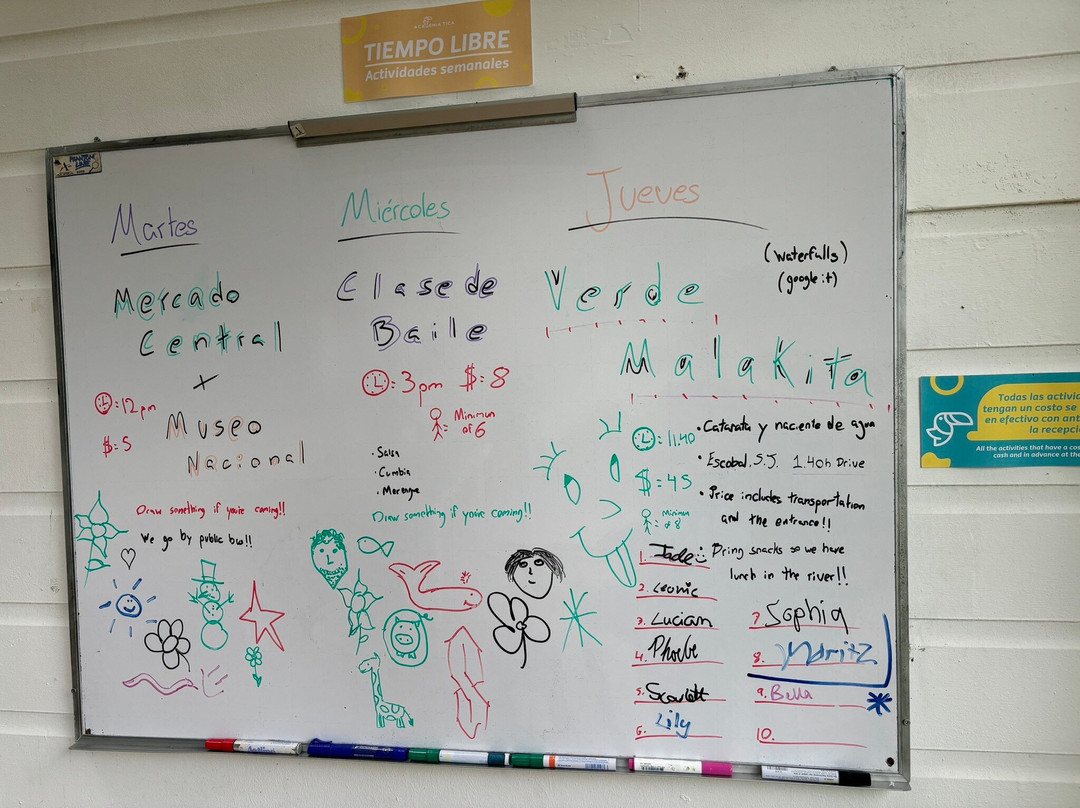 ACADEMIA TICA
TIEMPO LIBRE
Actividades semanales
Martes
Mercado
Central
+
Museo
Nacional
: 12 pm
$: 5
Draw something if you're coming!!
We go by public bus!!
Miércoles
Clase de
Baile
: 3pm $: 8
Minimun
of 6
• Salsa
• Cumbia
• Merengue
Draw something if you're coming!!
Jueves
(waterfalls)
(google it)
Verde
Malakita
: 11.40
$: 45
: Minimun
of 8
• Catarata y naciente de agua
• Escobal. S.J. 1.40h Drive
• Price includes transportation
and the entrance!!
Bring snacks so we have
lunch in the river!!
1. Jade
2. Leonie
3. Lucian
4. Phoebe
5. Scarlett
6. Lily
7. Sophia
8. Moritz
9. Bella
10.
Todas las activida
tengan un costo se
en efectivo con ant
la recepci
All the activities that have a cos
cash and in advance at the